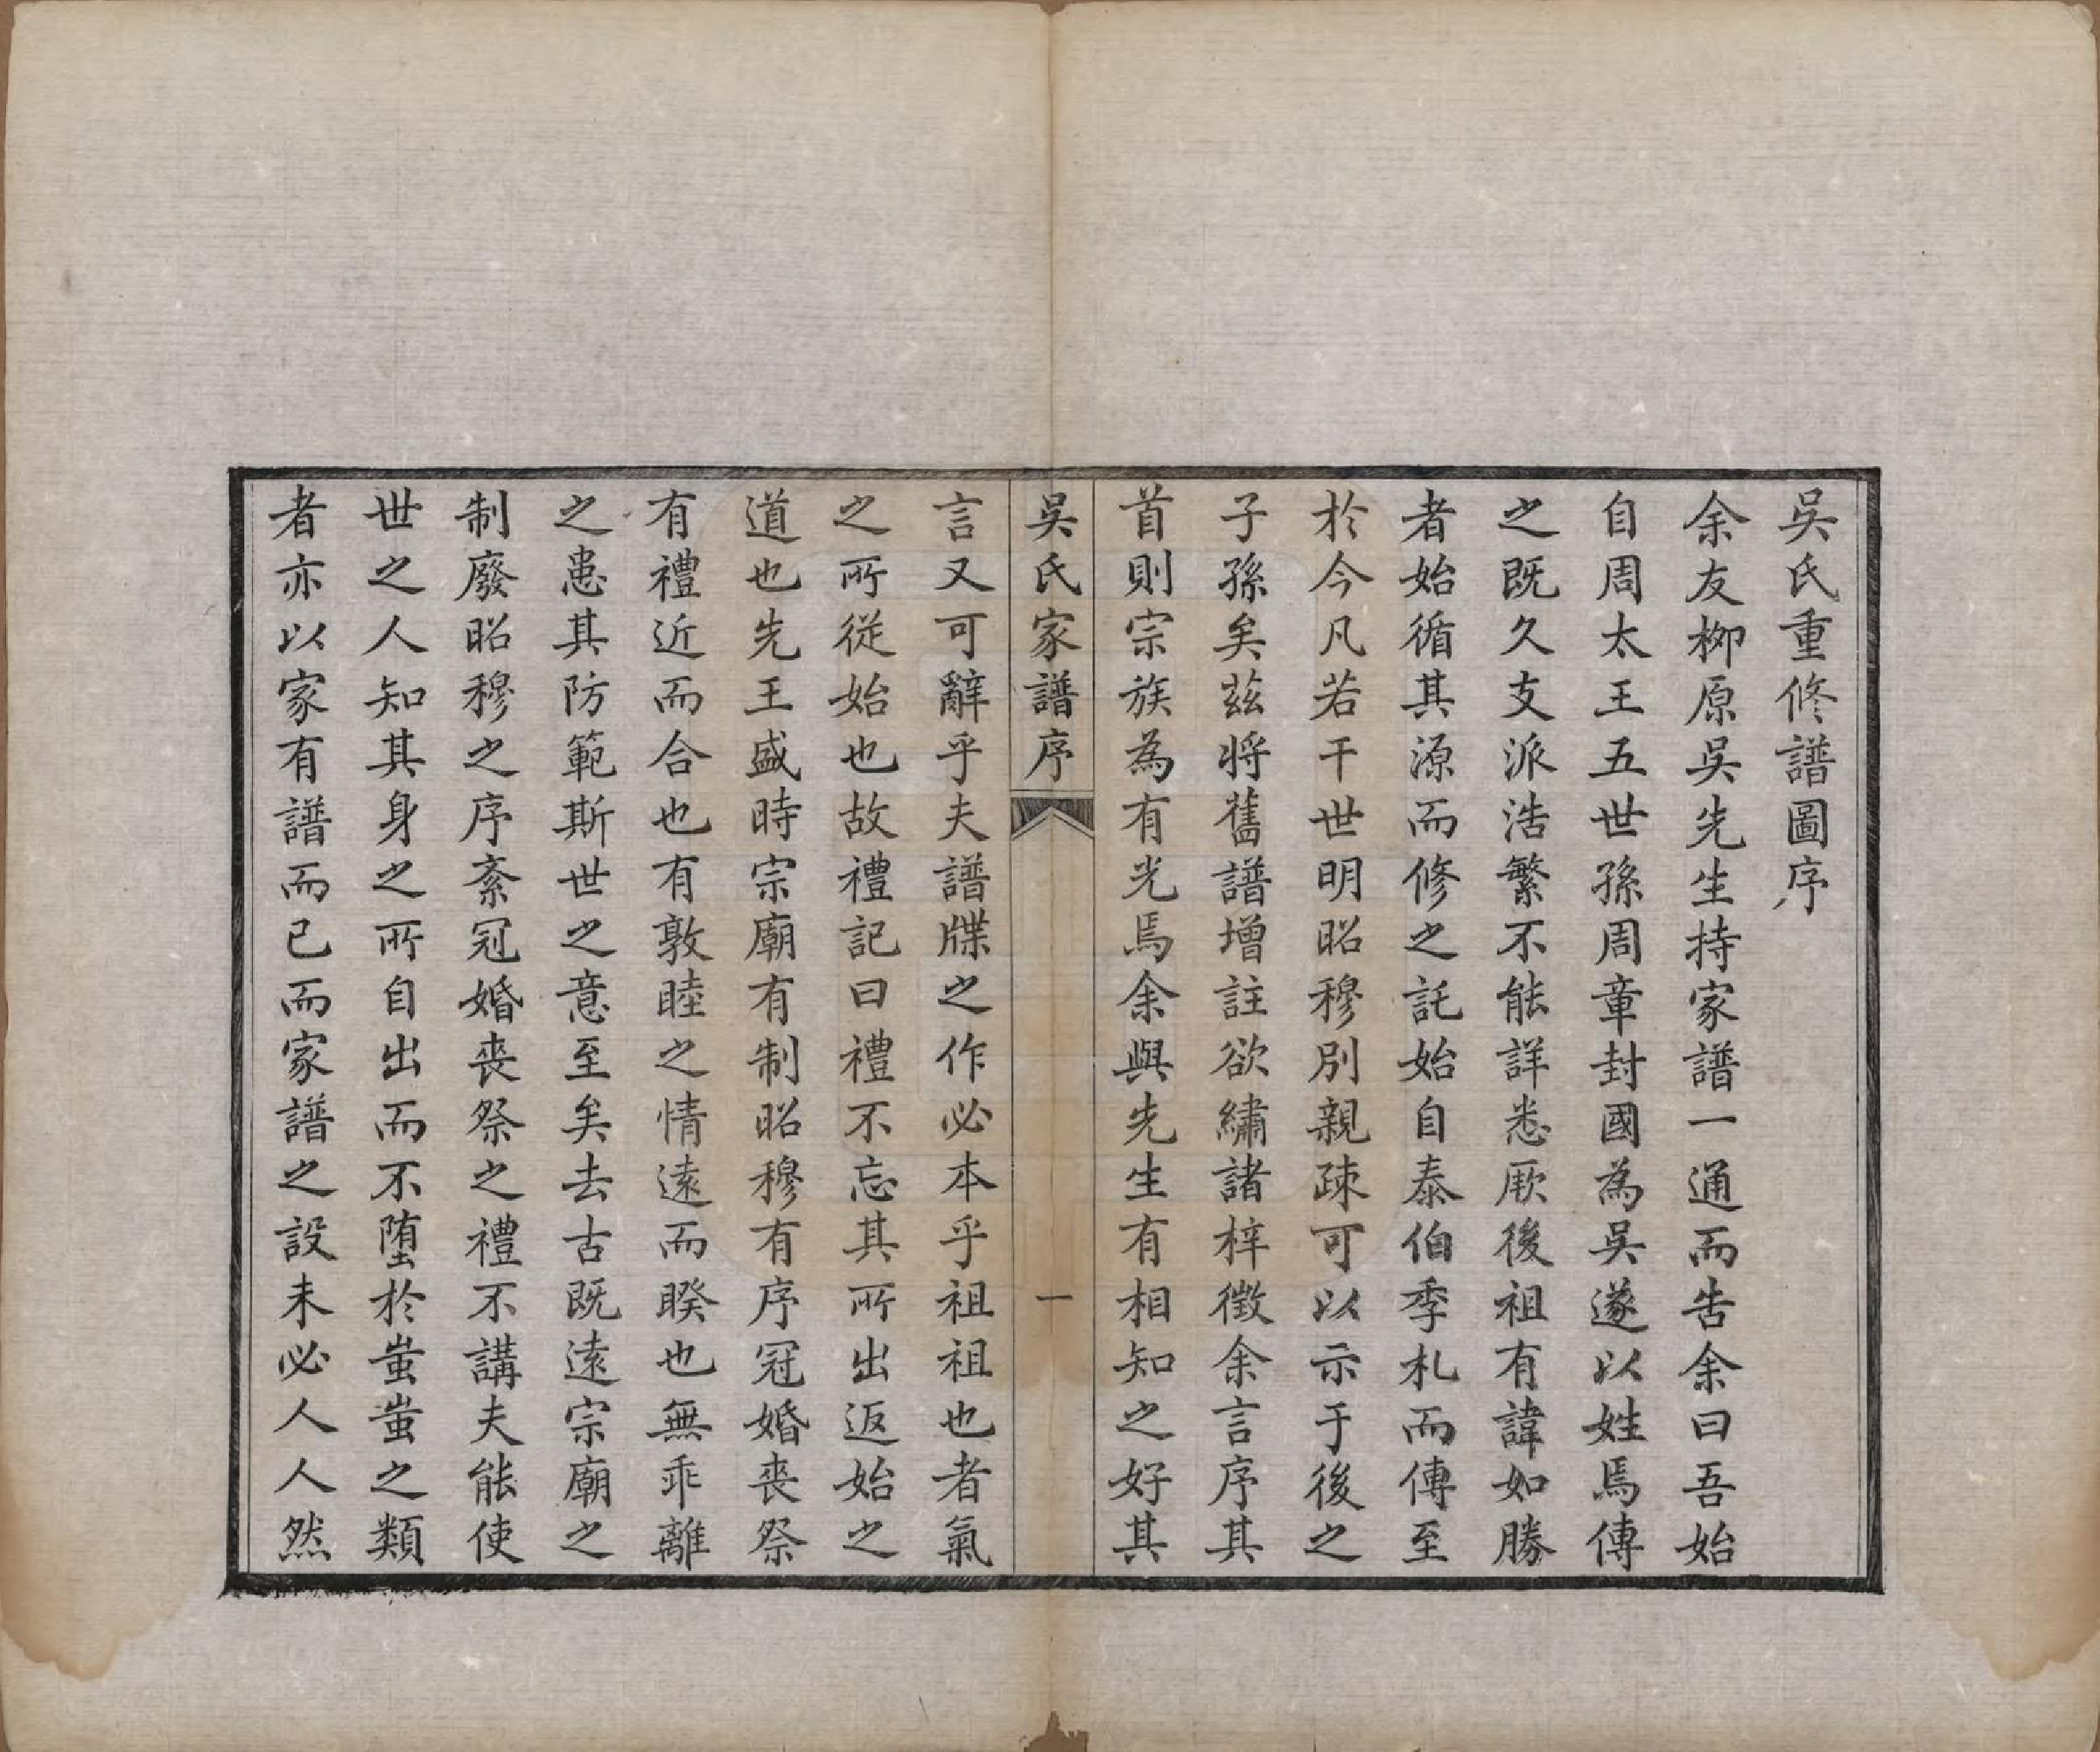 吳氏重修譜圖序
余友柳原吳先生持家譜一通而告余曰吾始
自周太王五世孫周章封國為吳遂以姓焉傳
之既久支派浩繁不能詳悉厥後祖有諱如勝
者始循其源而修之託始自泰伯季札而傳至
於今凡若干世明昭穆別親疎可以示于後之
子孫矣茲將舊譜增註欲繡諸梓徵余言序其
首則宗族為有光焉余與先生有相知之好其
吳氏家譜序 一
言又可辭乎夫譜牒之作必本乎祖祖也者氣
之所從始也故禮記曰禮不忘其所出返始之
道也先王盛時宗廟有制昭穆有序冠婚喪祭
有禮近而合也有敦睦之情遠而睽也無乖離
之患其防範斯世之意至矣去古既遠宗廟之
制廢昭穆之序紊冠婚喪祭之禮不講夫能使
世之人知其身之所自出而不堕於蚩蚩之類
者亦以家有譜而已而家譜之設未必人人然